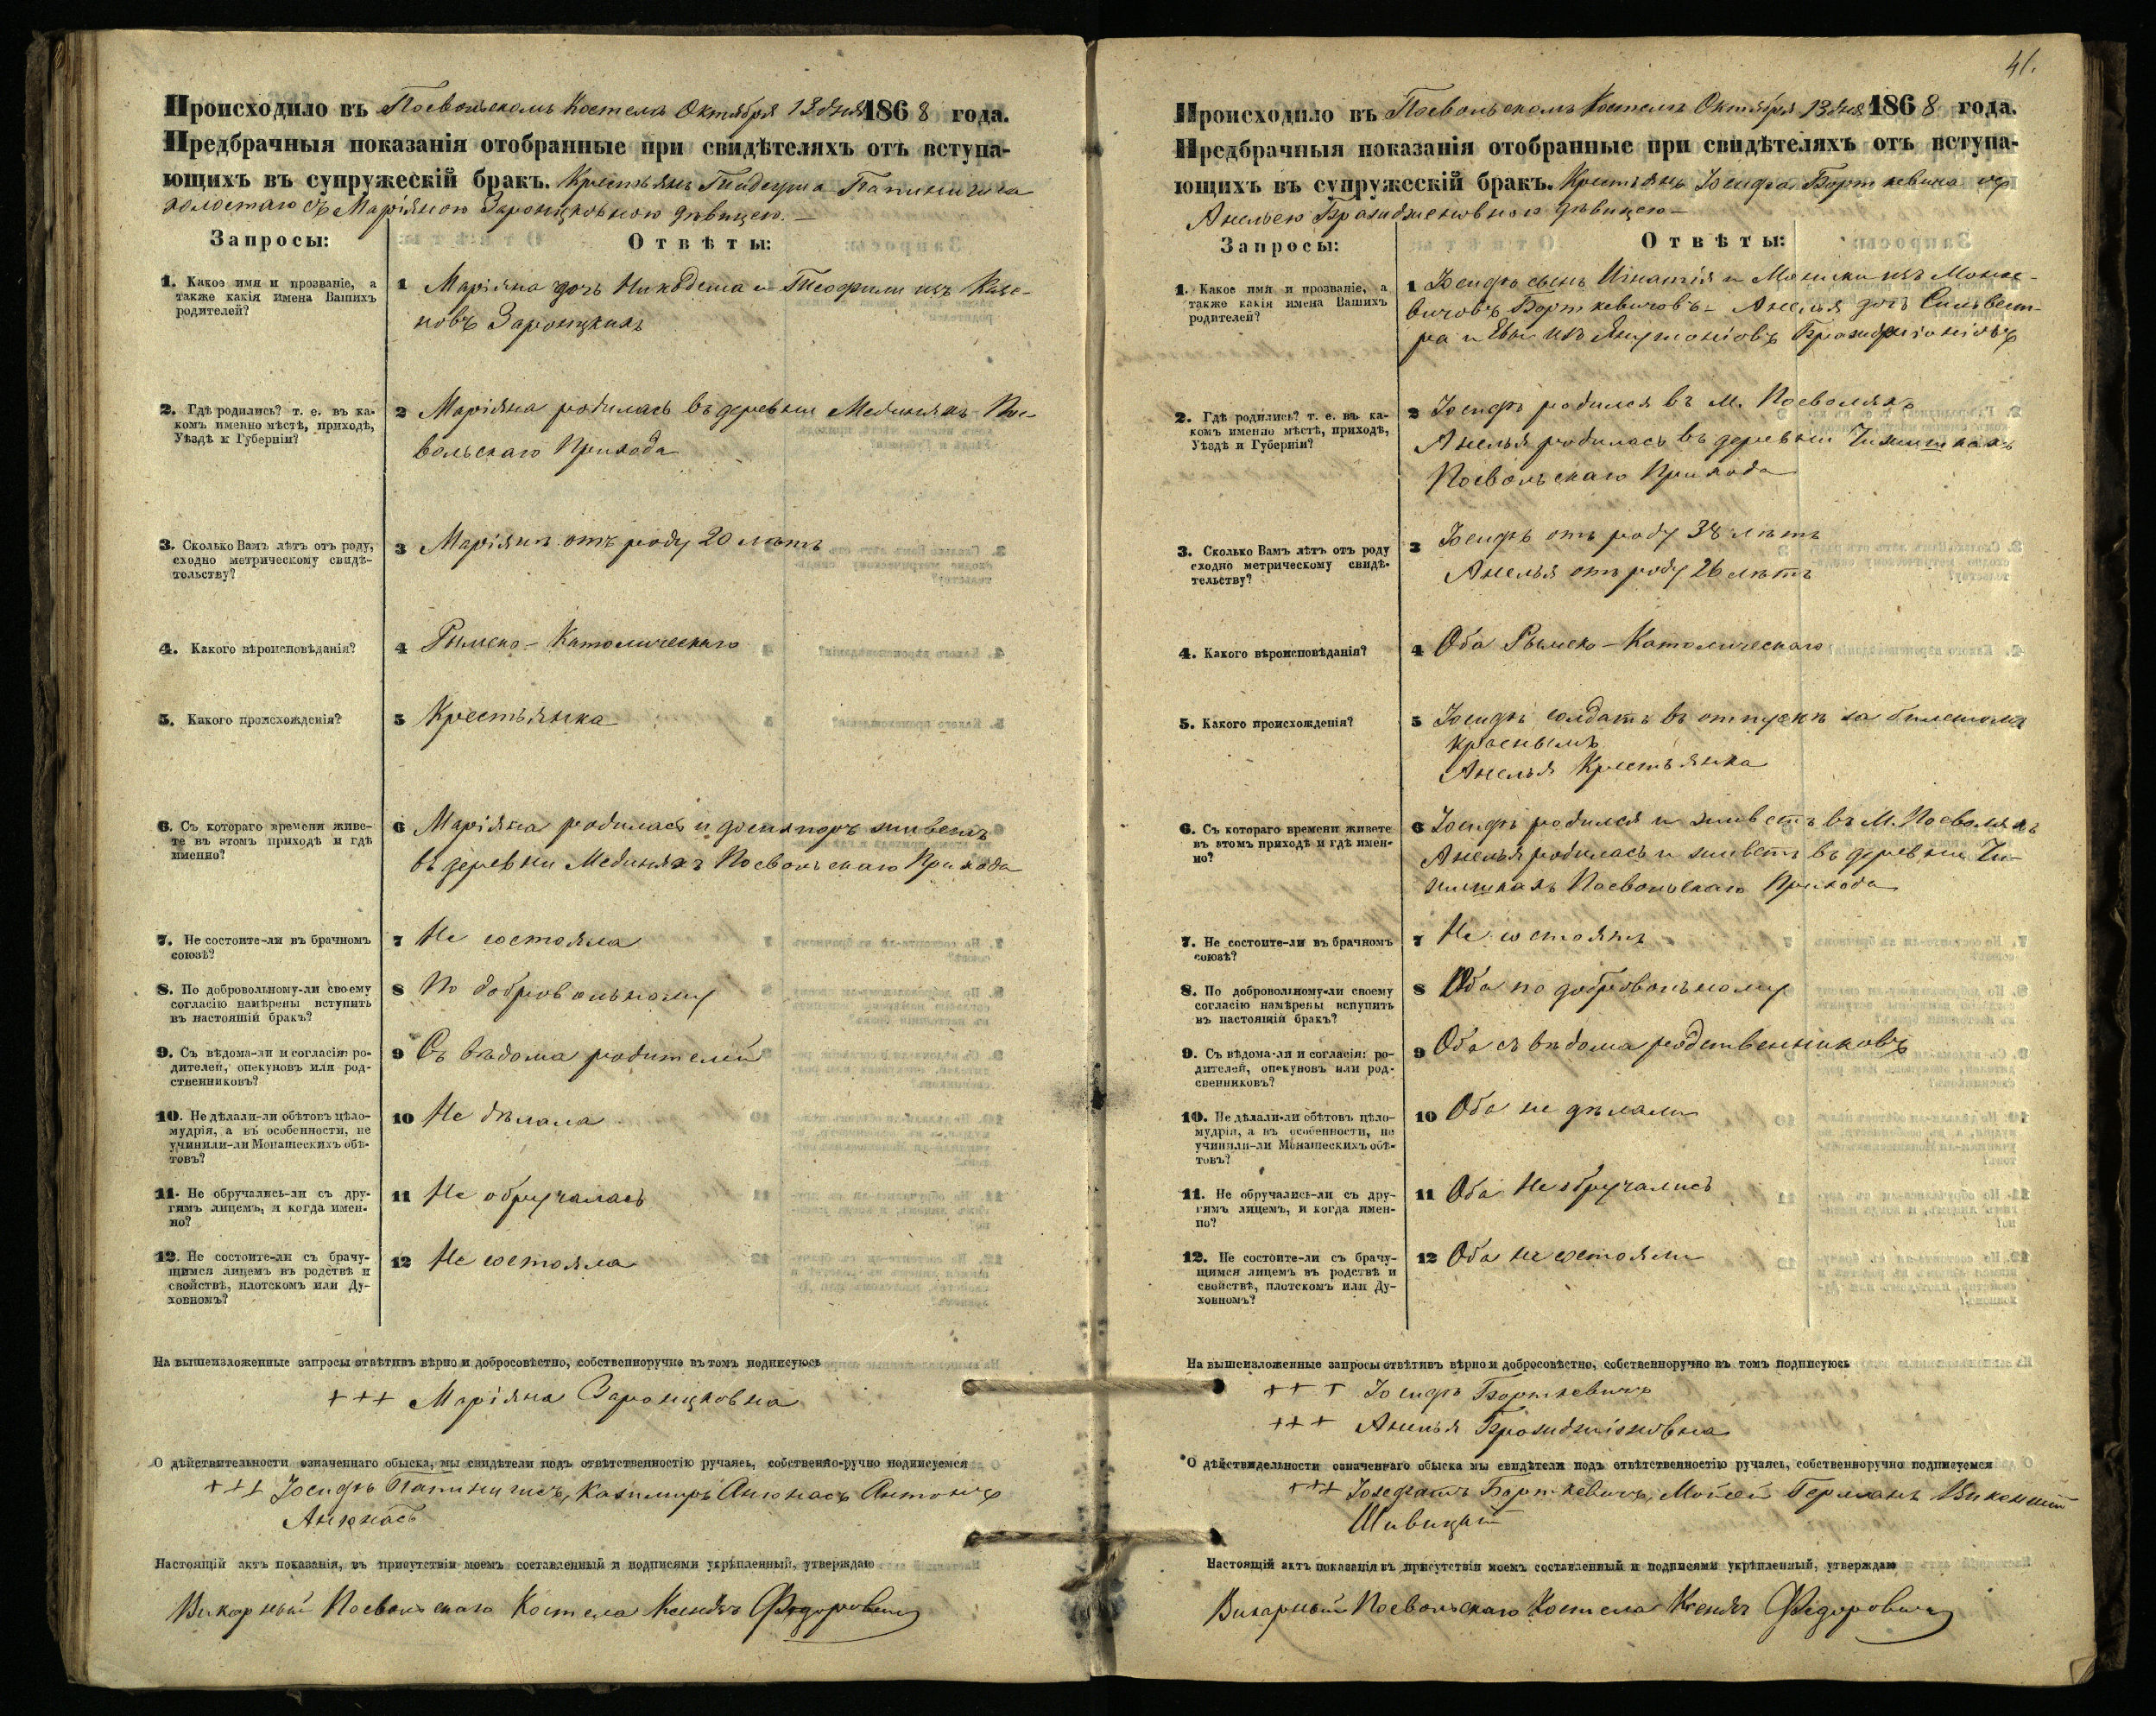 Происходило въ Поевольскомъ Костелѣ Октября 13 дня 1868 года.
Предбрачныя показанія отобранные при свидѣтеляхъ отъ вступа-
ющихъ въ супружескій бракъ. Крестьянъ
холостаго съ Маріяною Заронцковною дѣвицею. —
Запросы:
Отвѣты:
1. Какое имя и прозваніе, а
также какія имена Вашихъ
родителей?
1 Маріяна дочь Никодема и Теофили изъ
Заронцкихъ
2. Гдѣ родились? т. е. въ ка-
комъ именно мѣстѣ, приходѣ,
Уѣздѣ и Губерніи?
2 Маріяна родилась въ деревни Мединяхъ Пое-
вольскаго Прихода
3. Сколько Вамъ лѣтъ отъ роду,
сходно метрическому свидѣ-
тельству?
3 Маріяна отъ роду 20 лѣтъ
4. Какого вѣроисповѣданія?
4 Рымско-Католическаго
5. Какого происхожденія?
5 Крестьянка
6. Съ котораго времени живе-
те въ этомъ приходѣ и гдѣ
именно?
6 Маріяна родилась и досихпоръ живетъ
въ деревни Мединяхъ Поевольскаго Прихода
7. Не состоите-ли въ брачномъ
союзѣ?
7 Не состояла
8. По добровольному-ли своему
согласію намѣрены вступить
въ настоящій бракъ?
8 По добровольному
9. Съ вѣдома-ли и согласія: ро-
дителей, опекуновъ или род-
ственниковъ?
9 Съ вѣдома родителей
10. Не дѣлали-ли обѣтовъ цѣло-
мудрія, а въ особенности, не
учинили-ли Монашескихъ обѣ-
товъ?
10 Не дѣлала
11. Не обручались-ли съ дру-
гимъ лицемъ, и когда имен-
но?
11 Не обручалась
12. Не состоите-ли съ брачу-
щимся лицемъ въ родствѣ и
свойствѣ, плотскомъ или Ду-
ховномъ?
12 Не состояла
На вышеизложенные запросы отвѣтивъ вѣрно и добросовѣстно, собственноручно въ томъ подписуюсь
+++ Маріяна Заронцковна
О дѣйствительности означеннаго обыска, мы свидѣтели подъ отвѣтственностію ручаясь, собственно-ручно подписуемся
+++ Іосифъ Казимиръ Анюнасъ Антонъ
Анюнасъ
Настоящій актъ показанія, въ присутствіи моемъ составленный и подписями укрѣпленный, утверждаю
Викарный Поевольскаго Костела Ксендзъ Федоровичъ
41.
Происходило въ Поевольскомъ Костелѣ Октября 13 дня 1868 года.
Предбрачныя показанія отобранные при свидѣтеляхъ отъ вступа-
ющихъ въ супружескій бракъ. Крестьянъ Іосифа Борткевича съ
Анельею дѣвицею —
Запросы:
Отвѣты:
1. Какое имя и прозваніе, а
также какія имена Вашихъ
родителей?
1 Іосифъ сынъ Игнатія и Моники изъ
Борткевичовъ — Анелья дочь Сильвест-
ра и Евы изъ
2. Гдѣ родились? т. е. въ ка-
комъ именно мѣстѣ, приходѣ,
Уѣздѣ и Губерніи?
2 Іосифъ родился въ М. Поеволяхъ
Анелья родилась въ деревни Чижишкахъ
Поевольскаго Прихода
3. Сколько Вамъ лѣтъ отъ роду
сходно метрическому свидѣ-
тельству?
3 Іосифъ отъ роду 38 лѣтъ
Анелья отъ роду 26 лѣтъ
4. Какого вѣроисповѣданія?
4 Оба Рымско-Католическаго
5. Какого происхожденія?
5 Іосифъ солдатъ въ отпускѣ за билетомъ
краснымъ
Анелья Крестьянка
6. Съ котораго времени живете
въ этомъ приходѣ и гдѣ имен-
но?
6 Іосифъ родился и живетъ въ М. Поеволяхъ
Анелья родилась и живетъ въ деревни Чи-
жишкахъ Поевольскаго Прихода
7. Не состоите-ли въ брачномъ
союзѣ?
7 Не состоятъ
8. По добровольному-ли своему
согласію намѣрены вспупить
въ настоящій бракъ?
8 Оба по добровольному
9. Съ вѣдома-ли и согласія: ро-
дителей, опекуновъ или род-
свенниковъ?
9 Оба съ вѣдома родственниковъ
10. Не дѣлали-ли обѣтовъ цѣло-
мудрія, а въ особенности, не
учинили-ли Монашескихъ обѣ-
товъ?
10 Оба не дѣлали
11. Не обручались-ли съ дру-
гимъ лицемъ, и когда имен-
но?
11 Оба не обручались
12. Не состоите-ли съ брачу-
щимся лицемъ въ родствѣ и
свойствѣ, плотскомъ или Ду-
ховномъ?
12 Оба не состояли
На вышеизложенные запросы отвѣтивъ вѣрно и добросовѣстно, собственноручно въ томъ подписуюсь
+++ Іосифъ Борткевичъ
+++ Анелья
О дѣйствидельности означеннаго обыска мы свидѣтели подъ отвѣтственностію ручаясь, собственноручно подписуемся
+++ Іозефатъ Борткевичъ, Мойсей Германъ Викентій
Шивицкій
Настоящій актъ показанія въ присутствіи моемъ составленный и подписями укрѣпленный, утверждаю
Викарный Поевольскаго Костела Ксендзъ Федоровичъ